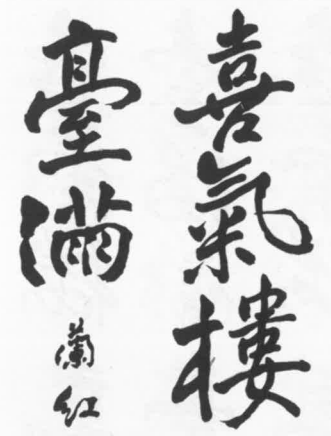 喜氣樓
臺滿
蘭红